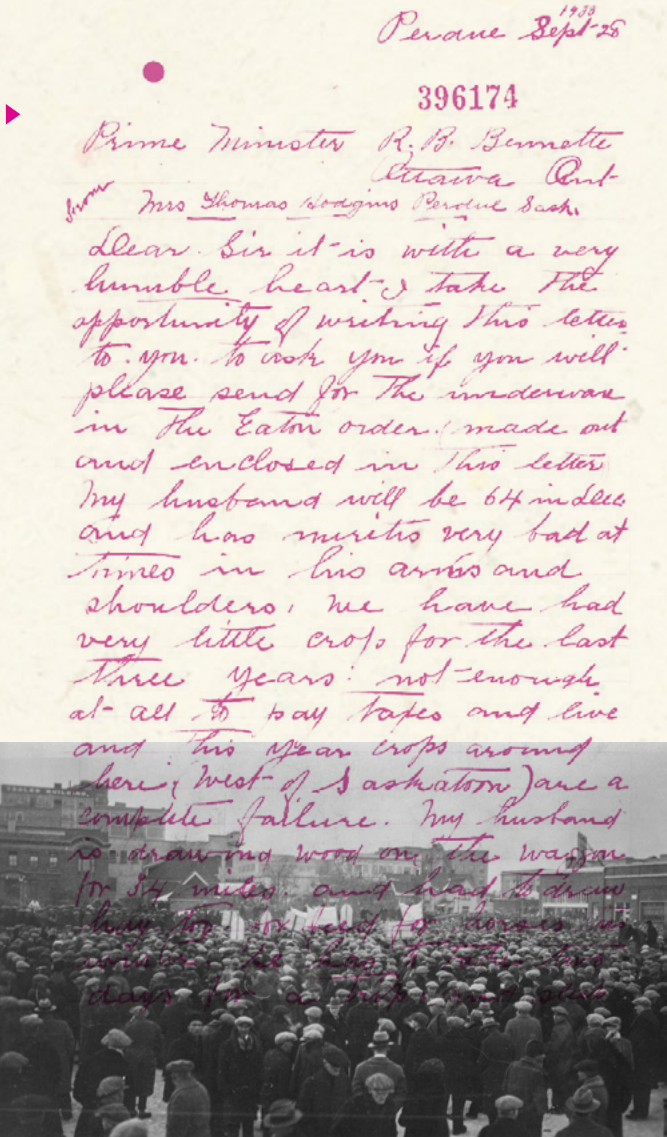 1933
Perdue Sept 28
396174
Prime Minister R. B. Bennette
Ottawa Ont
from Mrs Thomas Hodgins Perdue Sask.
Dear Sir it is with a very
humble heart I take the
opportunity of writing this letter
to you to ask you if you will
please send for the underware
in the Eaton order (made out
and enclosed in this letter
My husband will be 64 in Dec
and has nuritis very bad at
times in his arms and
shoulders. We have had
very little crop for the last
three years: not enough
at all to pay taxes and live
and this year crops around
here (West of Saskatoon) are a
complete failure. My husband
is drawing wood on the wagon
for 34 miles. and had to draw
hay too, for feed for horses this
winter. He has to take two
days for a trip, and